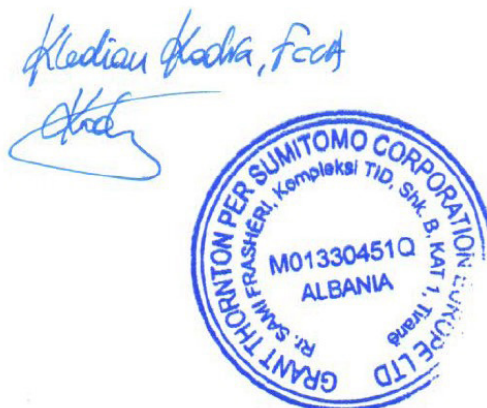 Kledian Kodra, FCCA
GRANT THORNTON PER SUMITOMO CORPORATION EUROPE LTD
Rr. SAMI FRASHERI, Kompleksi TID, Shk. B, KAT 1, Tiranë
M01330451Q
ALBANIA